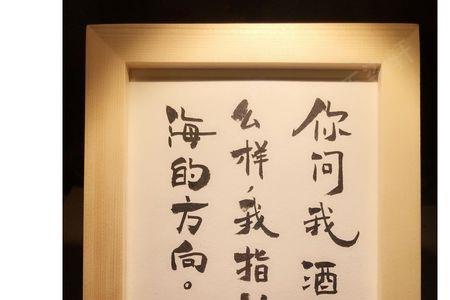 你问我酒
么样,我指
海的方向。